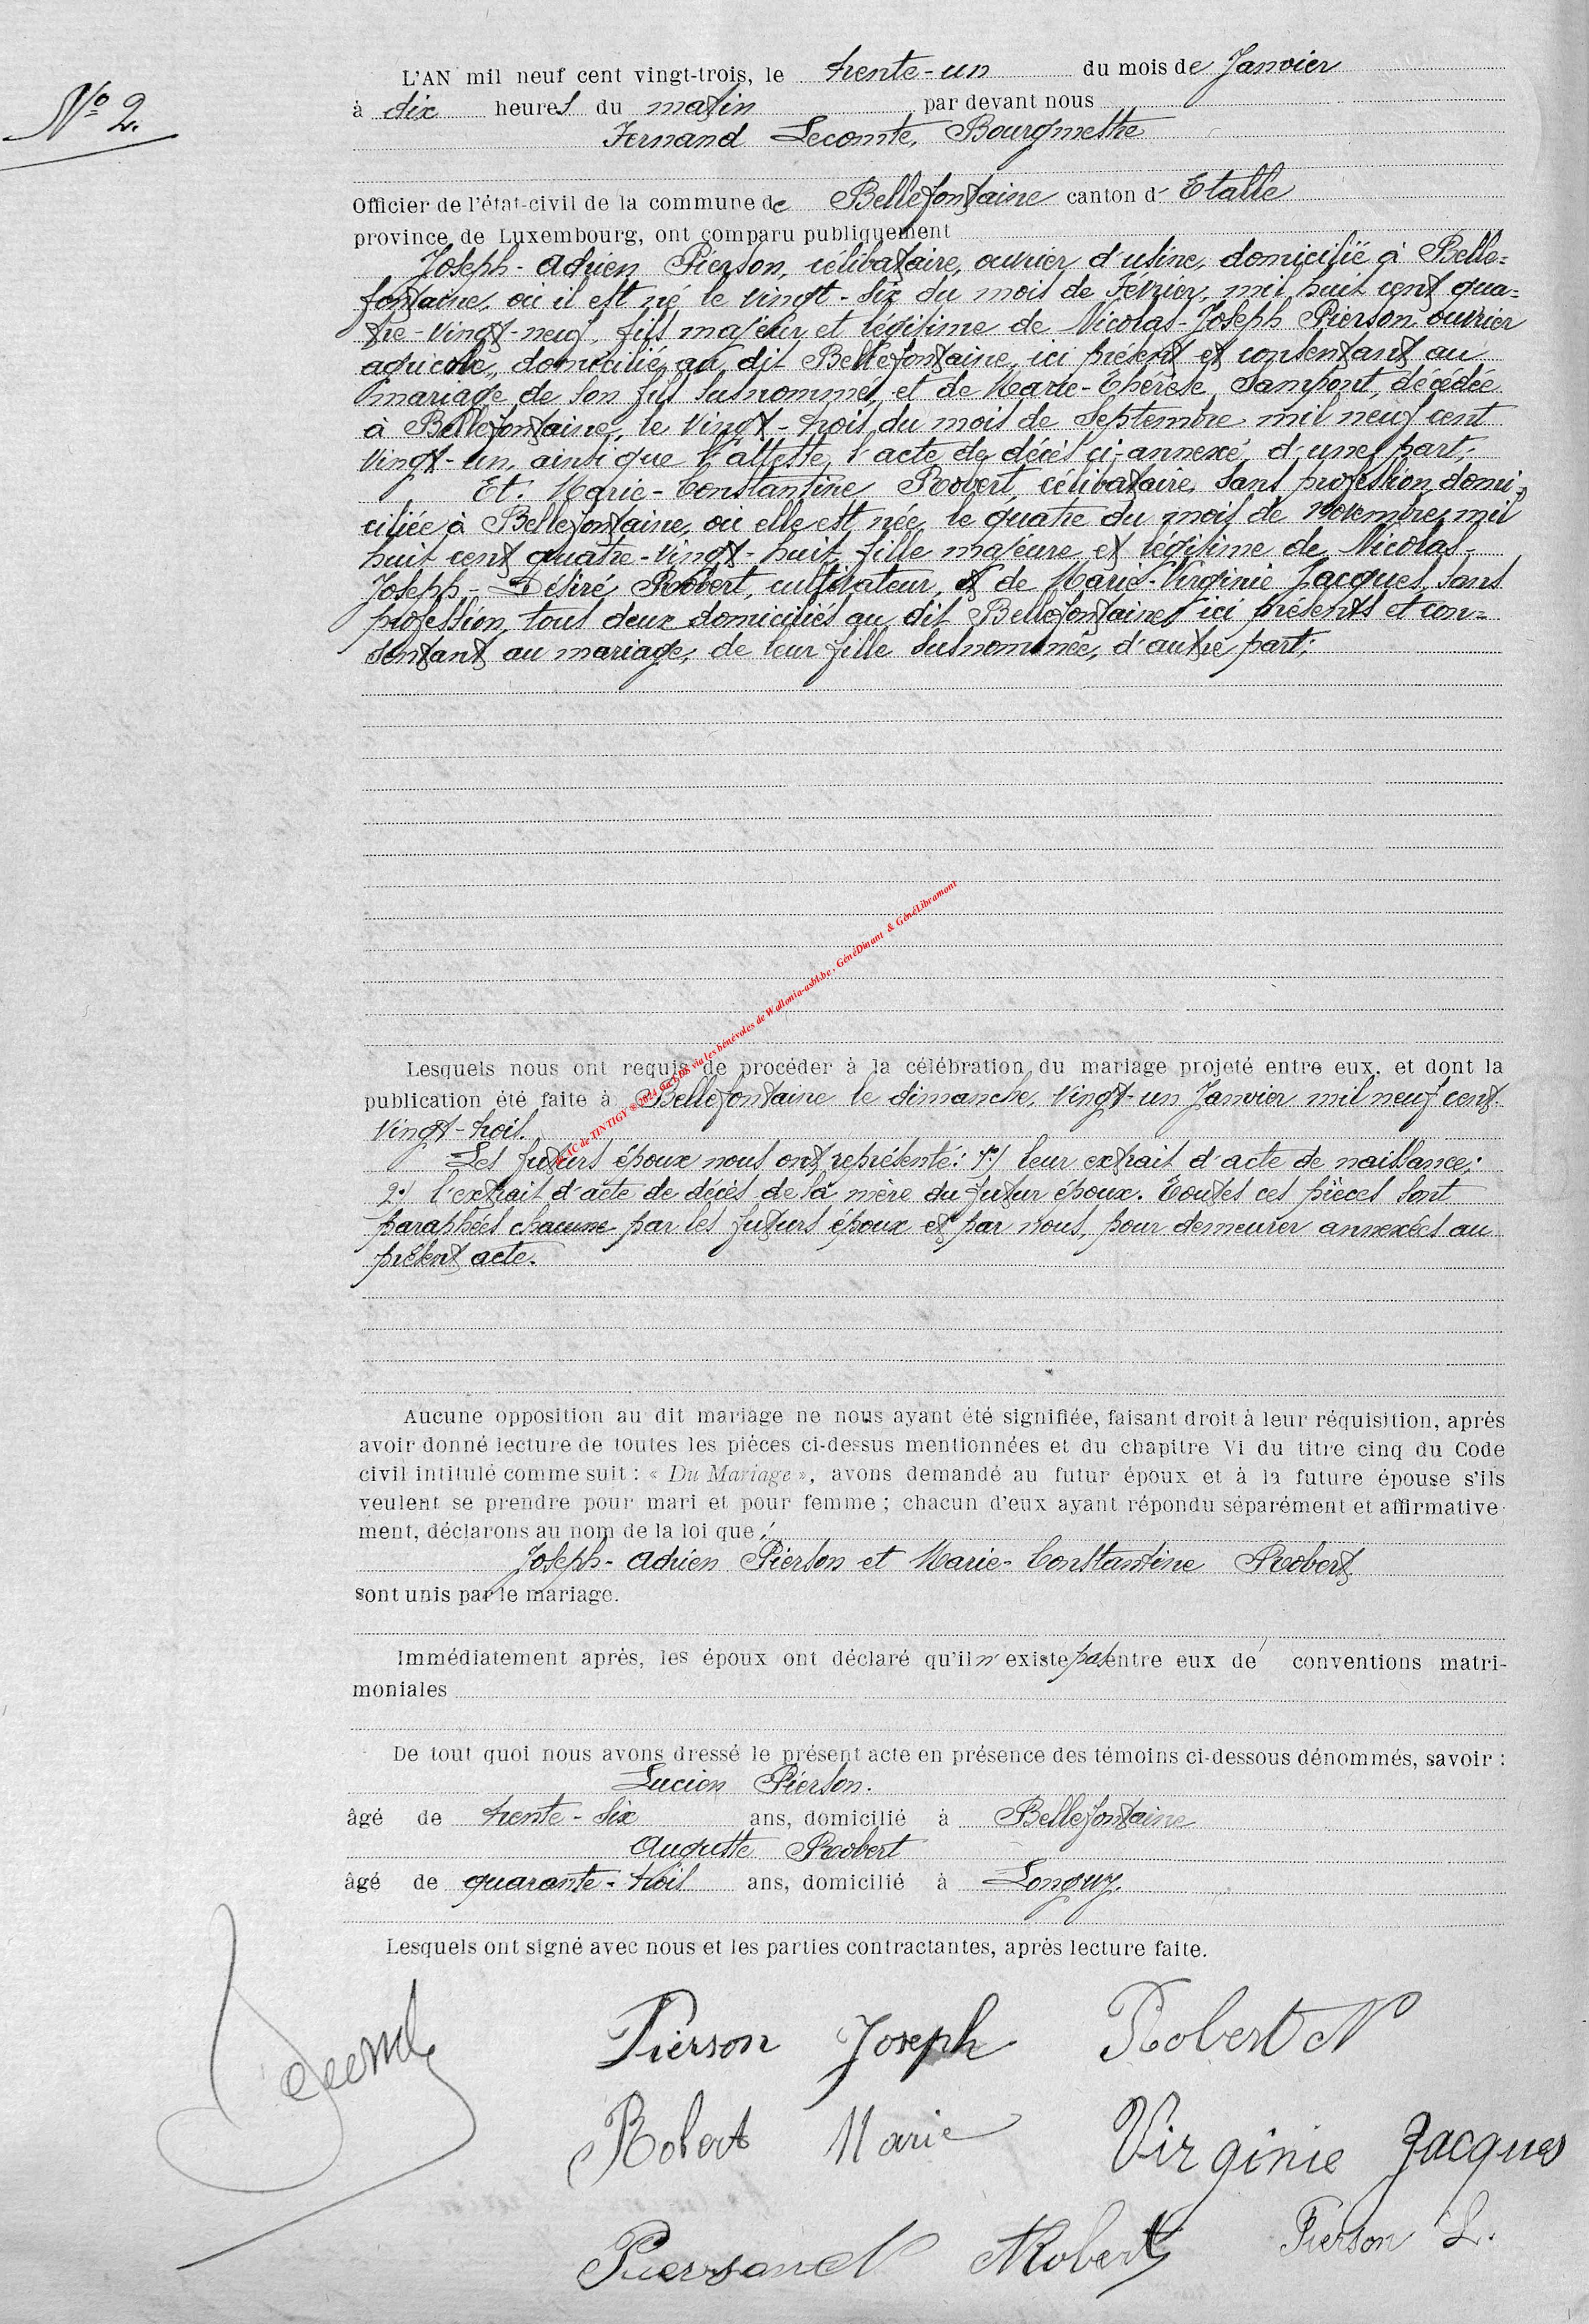 N° 2.
L'AN mil neuf cent vingt-trois, le trente-un du mois de Janvier
à dix heures du matin par devant nous
Fernand Lecomte, Bourgmestre
Officier de l'état-civil de la commune de Bellefontaine canton d' Etalle
province de Luxembourg, ont comparu publiquement
Joseph-Adrien Pierson, célibataire, ouvrier d'usine, domicilié à Belle=
fontaine, où il est né le vingt-six du mois de Février, mil huit cent qua=
tre-vingt-neuf, fils majeur et légitime de Nicolas-Joseph Pierson ouvrier
agricole, domicilié au dit Bellefontaine, ici présent et consentant au
mariage de son fils susnommé, et de Marie-Thérèse Sampont, décédée
à Bellefontaine, le vingt-trois du mois de Septembre mil neuf cent
vingt-un, ainsi que l'atteste l'acte de décès ci-annexé, d'une part,
Et. Marie-Constantine Robert, célibataire, sans profession, domi-
ciliée à Bellefontaine, où elle est née, le quatre du mois de Novembre, mil
huit cent quatre-vingt-huit, fille majeure et légitime de Nicolas-
Joseph-Désiré Robert, cultivateur, et de Marie-Virginie Jacques, sans
profession, tous deux domiciliés au dit Bellefontaine, ici présents et con=
sentant au mariage, de leur fille susnommée, d'autre part;
Lesquels nous ont requis de procéder à la célébration du mariage projeté entre eux, et dont la
publication été faite à Bellefontaine le dimanche, vingt-un Janvier mil neuf cent
vingt-trois.
Les futurs époux nous ont représenté: 1°/ leur extrait d'acte de naissance;
2°/ l'extrait d'acte de décès de la mère du futur époux. Toutes ces pièces sont
paraphées chacune par les futurs époux et par nous, pour demeurer annexées au
présent acte.
AC de TINTIGY © 2024 via les bénévoles de Wallonia-asbl.be, GénéDinant & GénéLibramont
Aucune opposition au dit mariage ne nous ayant été signifiée, faisant droit à leur réquisition, après
avoir donné lecture de toutes les pièces ci-dessus mentionnées et du chapitre VI du titre cinq du Code
civil intitulé comme suit : « Du Mariage », avons demandé au futur époux et à la future épouse s'ils
veulent se prendre pour mari et pour femme ; chacun d'eux ayant répondu séparément et affirmative-
ment, déclarons au nom de la loi que :
Joseph-Adrien Pierson et Marie-Constantine Robert
sont unis par le mariage.
Immédiatement après, les époux ont déclaré qu'il n'existe pas entre eux de conventions matri-
moniales
De tout quoi nous avons dressé le présent acte en présence des témoins ci-dessous dénommés, savoir :
Lucien Pierson.
âgé de trente-six ans, domicilié à Bellefontaine
Auguste Robert
âgé de quarante-trois ans, domicilié à Longwy.
Lesquels ont signé avec nous et les parties contractantes, après lecture faite.
Lecomte
Pierson Joseph Robert N
Robert Marie Virginie Jacques
Pierson N Robert Pierson L.